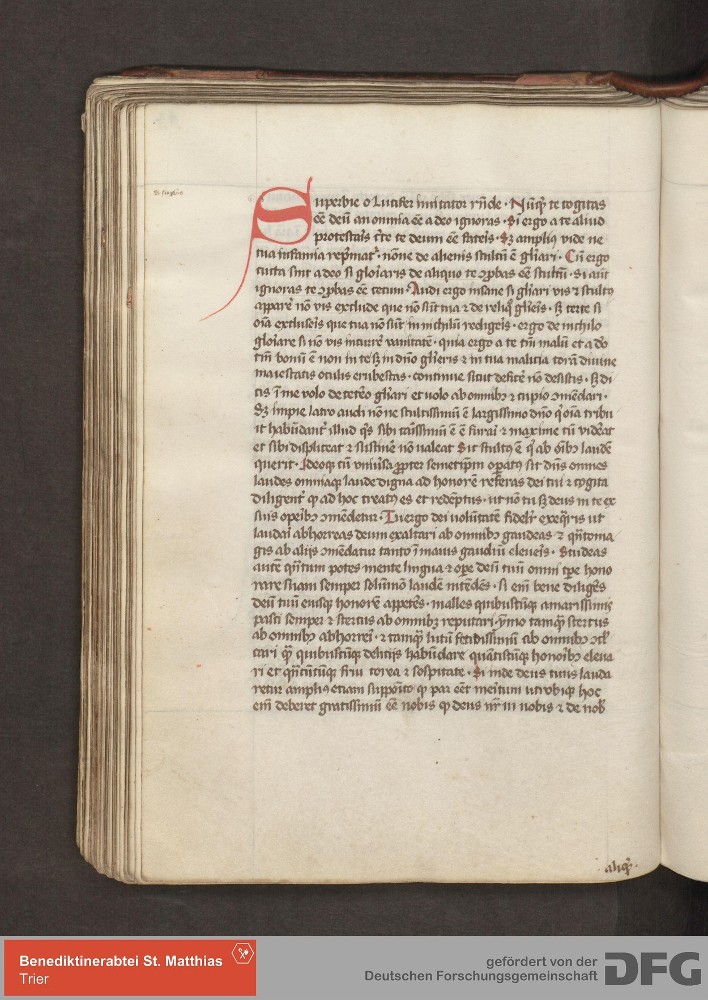 Superbie o Lucifer imitator rn̄de · Nūqͥd te cogitas
eē deū an omnia eē a deo ignoras · Si ergo a te aliud
protestaris certe te deum eē fateris · Sꝫ amplius vide ne
tua insania reprimatur · nōne de alienis stultū ē gloriari · Cū ergo
cuncta sint a deo si gloriaris de aliquo te ꝓbas eē stultū · Si aūt
ignoras te ꝓbas eē cecum · Audi ergo insane si gloriari vis ⁊ stultus
apparere nō vis exclude que nō sūt tua ⁊ de reliquis glorieris · sꝫ certe si
oīa excluseris que tua nō sūt in nichilū redigeris · ergo de nichilo
gloriare si nō vis incurrere vanitatē · quia ergo a te tm̄ malū et a deo
tm̄ bonū ē non in te sꝫ in dn̄o glorieris ⁊ in tua malicia coram diuine
maiestatis oculis erubescas · continue sicut deficere nō desistis · sꝫ di
cis in me volo de cetero gloriari et volo ab omnibꝫ ⁊ cupio cōmendari ·
Sꝫ impie latro audi nōne stultissimū ē largissimo dn̄o qui oīa tribu
it habundanter illud qd̄ sibi carissimū ē furari ⁊ maxime cū videat
et sibi displiceat ⁊ sustinere nō valeat Sic stultus ē qui ab oībꝫ laudē
querit · Ideoqꝫ cū vniuersa ꝓpter semetip̄m operatus sit dn̄s omnes
laudes omniaqꝫ laude digna ad honorē referas dei tui ⁊ cogita
diligenter qꝫ ad hoc creatus es et redemptus · ut nō tu sꝫ deus in te ex
suis operibꝫ cōmendetur · Tu ergo dei volūtatē fideliter exequeris ut
laudari abhorreas deum exaltari ab omnibꝫ gaudeas ⁊ qn̄to ma
gis ab alijs cōmendatur tanto in maius gaudiū eleueris · Studeas
autē qn̄tum potes mente lingua ⁊ ope deū tuū omni tp̄e hono
rare suam semper solūmō laudē intendēs · si em̄ bene diligeres
deū tuū eiusqꝫ honorē appeteres · malles quibuscūqꝫ amarissimis
pasci semper ⁊ stercus ab omnibꝫ reputari · ymmo tamqͣꝫ stercus
ab omnibꝫ abhorreri · ⁊ tamqͣꝫ lutū fetidissimū ab omnibꝫ cōcul
cari qͣꝫ quibuscūqꝫ delicijs habūdare quātiscūqꝫ honoribꝫ eleua
ri et qn̄cūcūqꝫ frui corea ⁊ sospitate · Si inde deus tuus lauda
retur amplius etiam supposito qꝫ par eēt meritum utrobiqꝫ hoc
em̄ deberet gratissimū eē nobis qꝫ deus nr̄ in nobis ⁊ de nob̄
aliqͣꝫ
Benediktinerabtei St. Matthias
Trier
gefördert von der
Deutschen Forschungsgemeinschaft
DFG